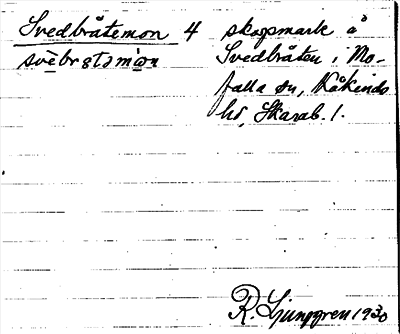 Svedbråtemon 4 skogsmark å
svèbrstəmòn Svedbråten i Mo-
falla sn, Kåkinds
hd, Skarab. l.
R. Ljunggren 1930